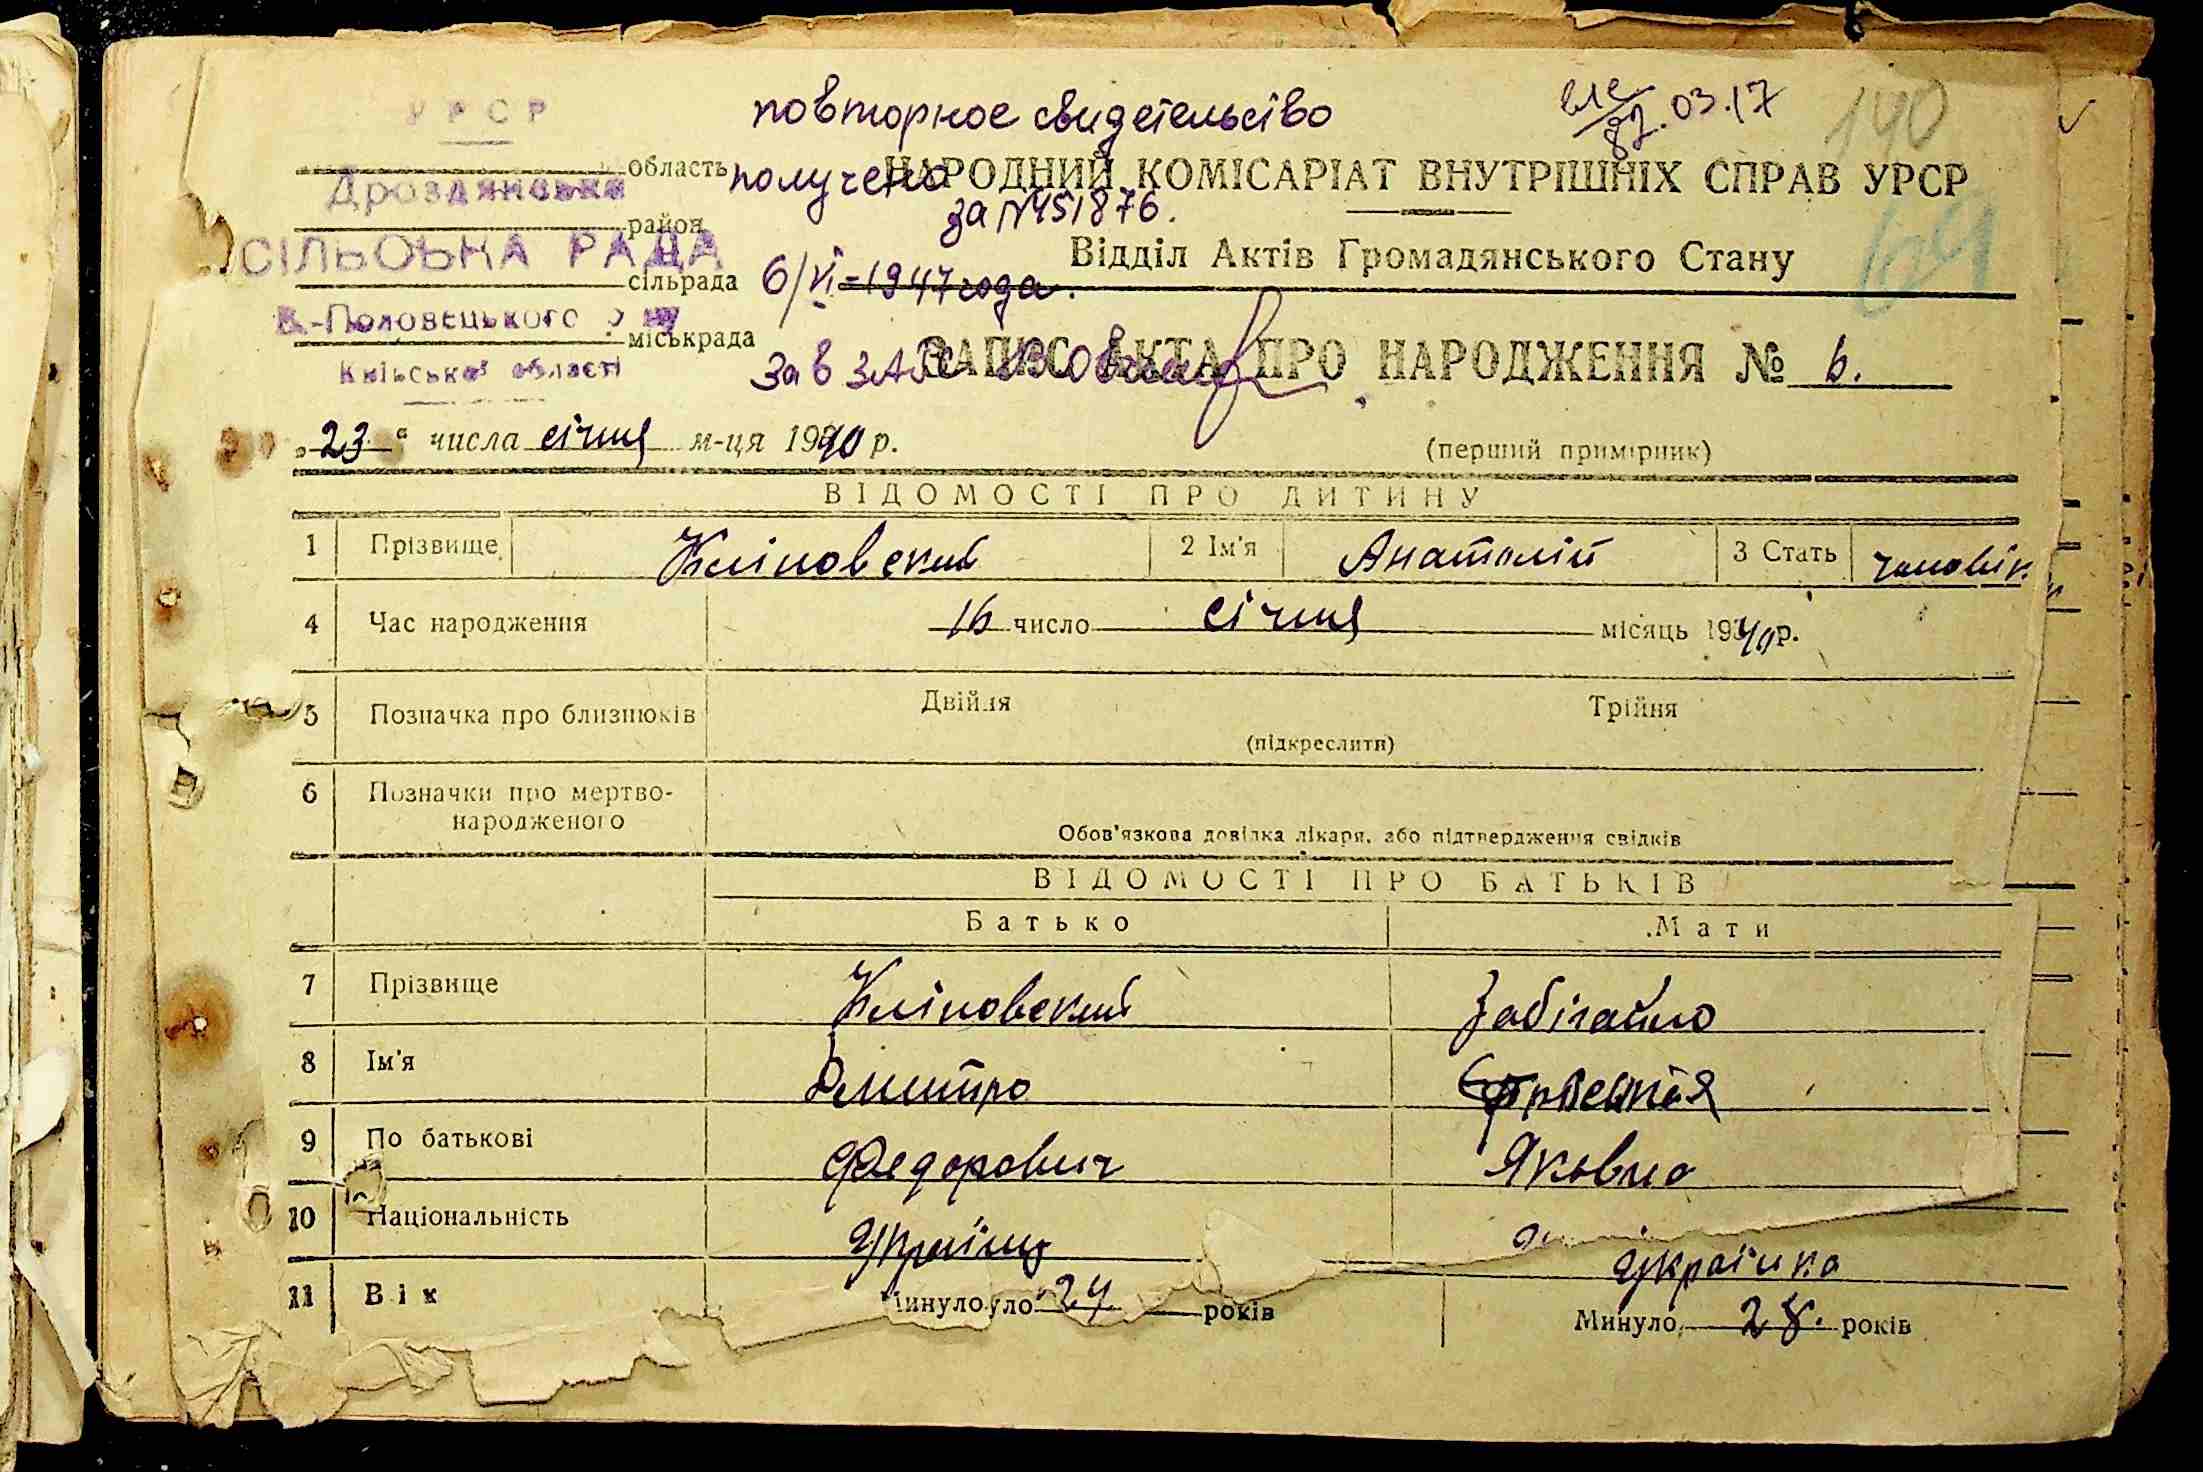 УРСР
повторное свидетельство
03.17
190
область
получено
НАРОДНИЙ КОМІСАРІАТ ВНУТРІШНІХ СПРАВ УРСР
Дроздянська
за №451876.
район
СІЛЬСЬКА РАДА
Відділ Актів Громадянського Стану
64
сільрада
6/VI-1947 года.
К.-Половецького р-ну
міськрада
Зав ЗАГС
ЗАПИС АКТА ПРО НАРОДЖЕННЯ № 6.
Київської області
„23“ числа січня м-ця 1940 р.
(перший примірник)
ВІДОМОСТІ ПРО ДИТИНУ
1 Прізвище Кліновский 2 Ім'я Анатолій 3 Стать чоловіч.
4 Час народження 16 число січня місяць 1940 р.
5 Позначка про близнюків Двійля Трійня
(підкреслити)
6 Позначки про мертво-
народженого
Обов'язкова довідка лікаря, або підтвердження свідків
ВІДОМОСТІ ПРО БАТЬКІВ
Батько Мати
7 Прізвище Кліновский Забігайло
8 Ім'я Дмитро
9 По батькові Федорович Яковна
10 Національність Українц Українка
11 Вік Минуло 24 років Минуло 28. років